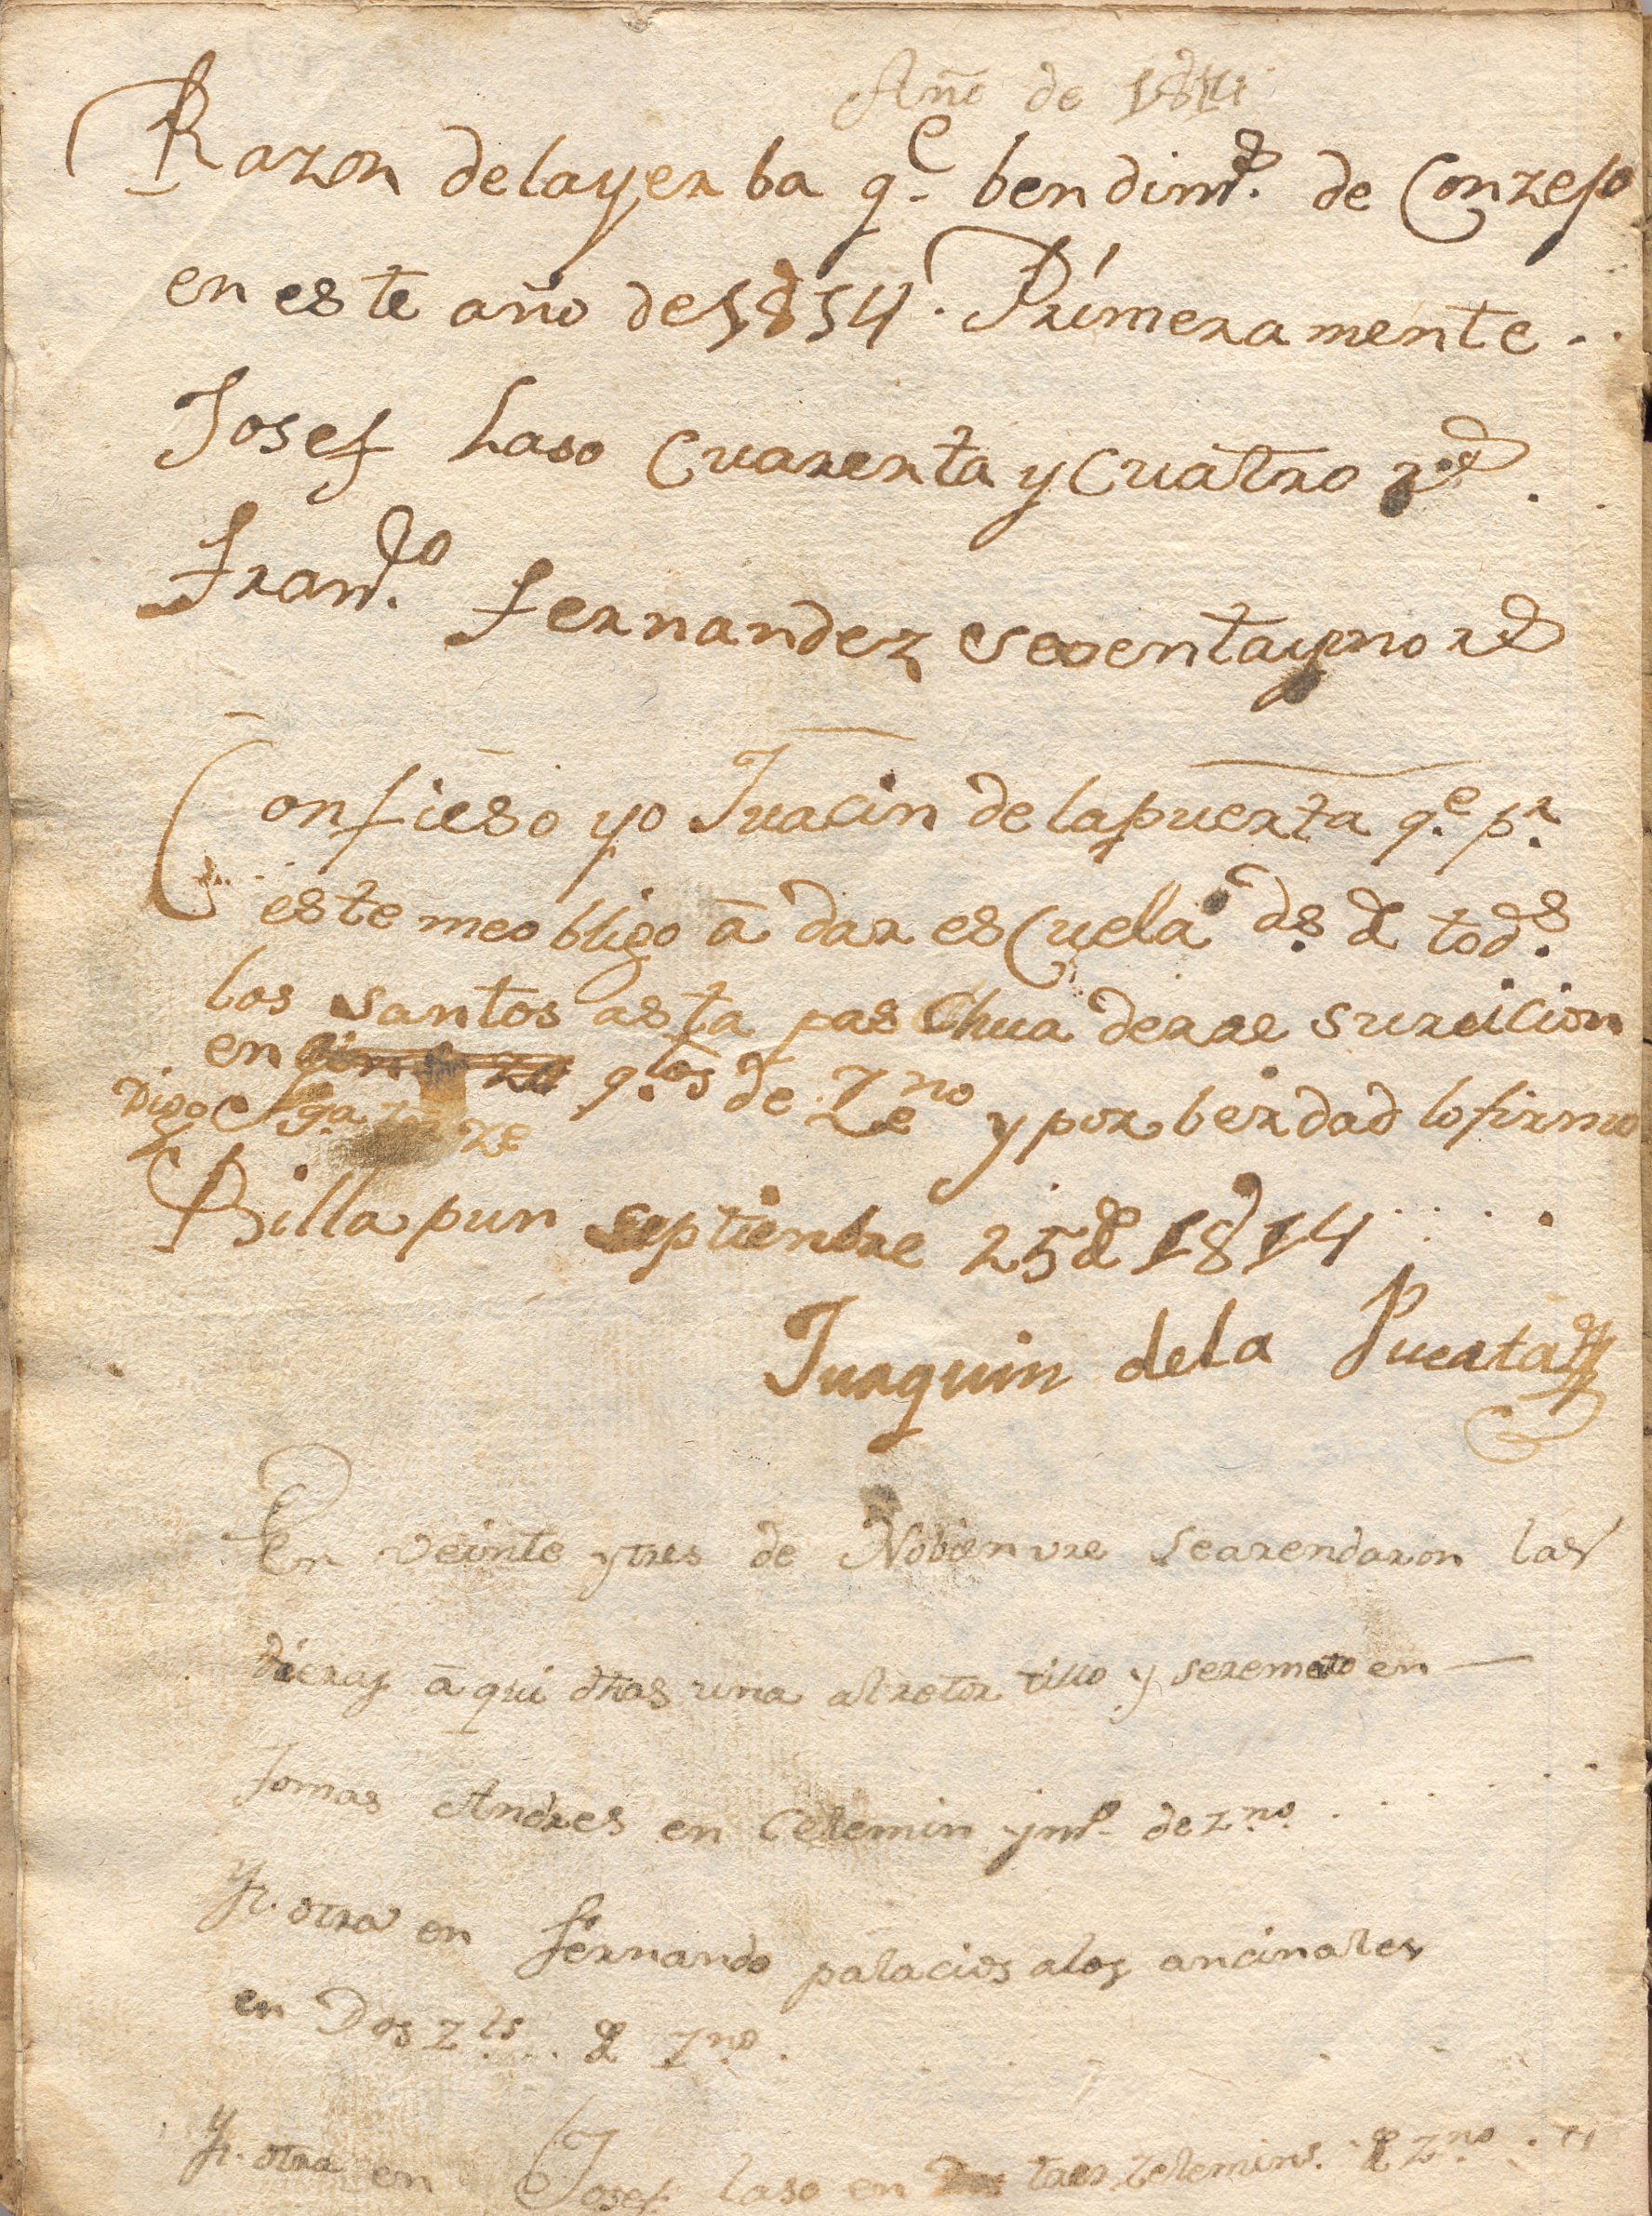 Año de 1814
Razon delayerba q.e bendim.s de Conzejo
en este año de 1814. Primeramente..
Josef Laso Cuarenta y Cuatro r.s
Fran.co Fernandez sesentayuno rs
Confieso yo Juacin delapuerta q.e p.r
este meobligo á dar esCuela ds. de tod.s
los santos asta pasChua derresureicion
en q.os de Zeno y por berdad lofirmo
Digo
Billapun septienbre 25 de 1814
Juaquin dela Puerta
En veinte ytres de Nobienvre searendaron las
dieras á qui dhas una alretortillo y seremato en
Tomas Andres en Celemin ym.o de z.no
Yt. otra en fernando palacios alos ancinales
en Dos zls. de z.no
Yt. otra en Josef laso en tres zelemins. de z.no